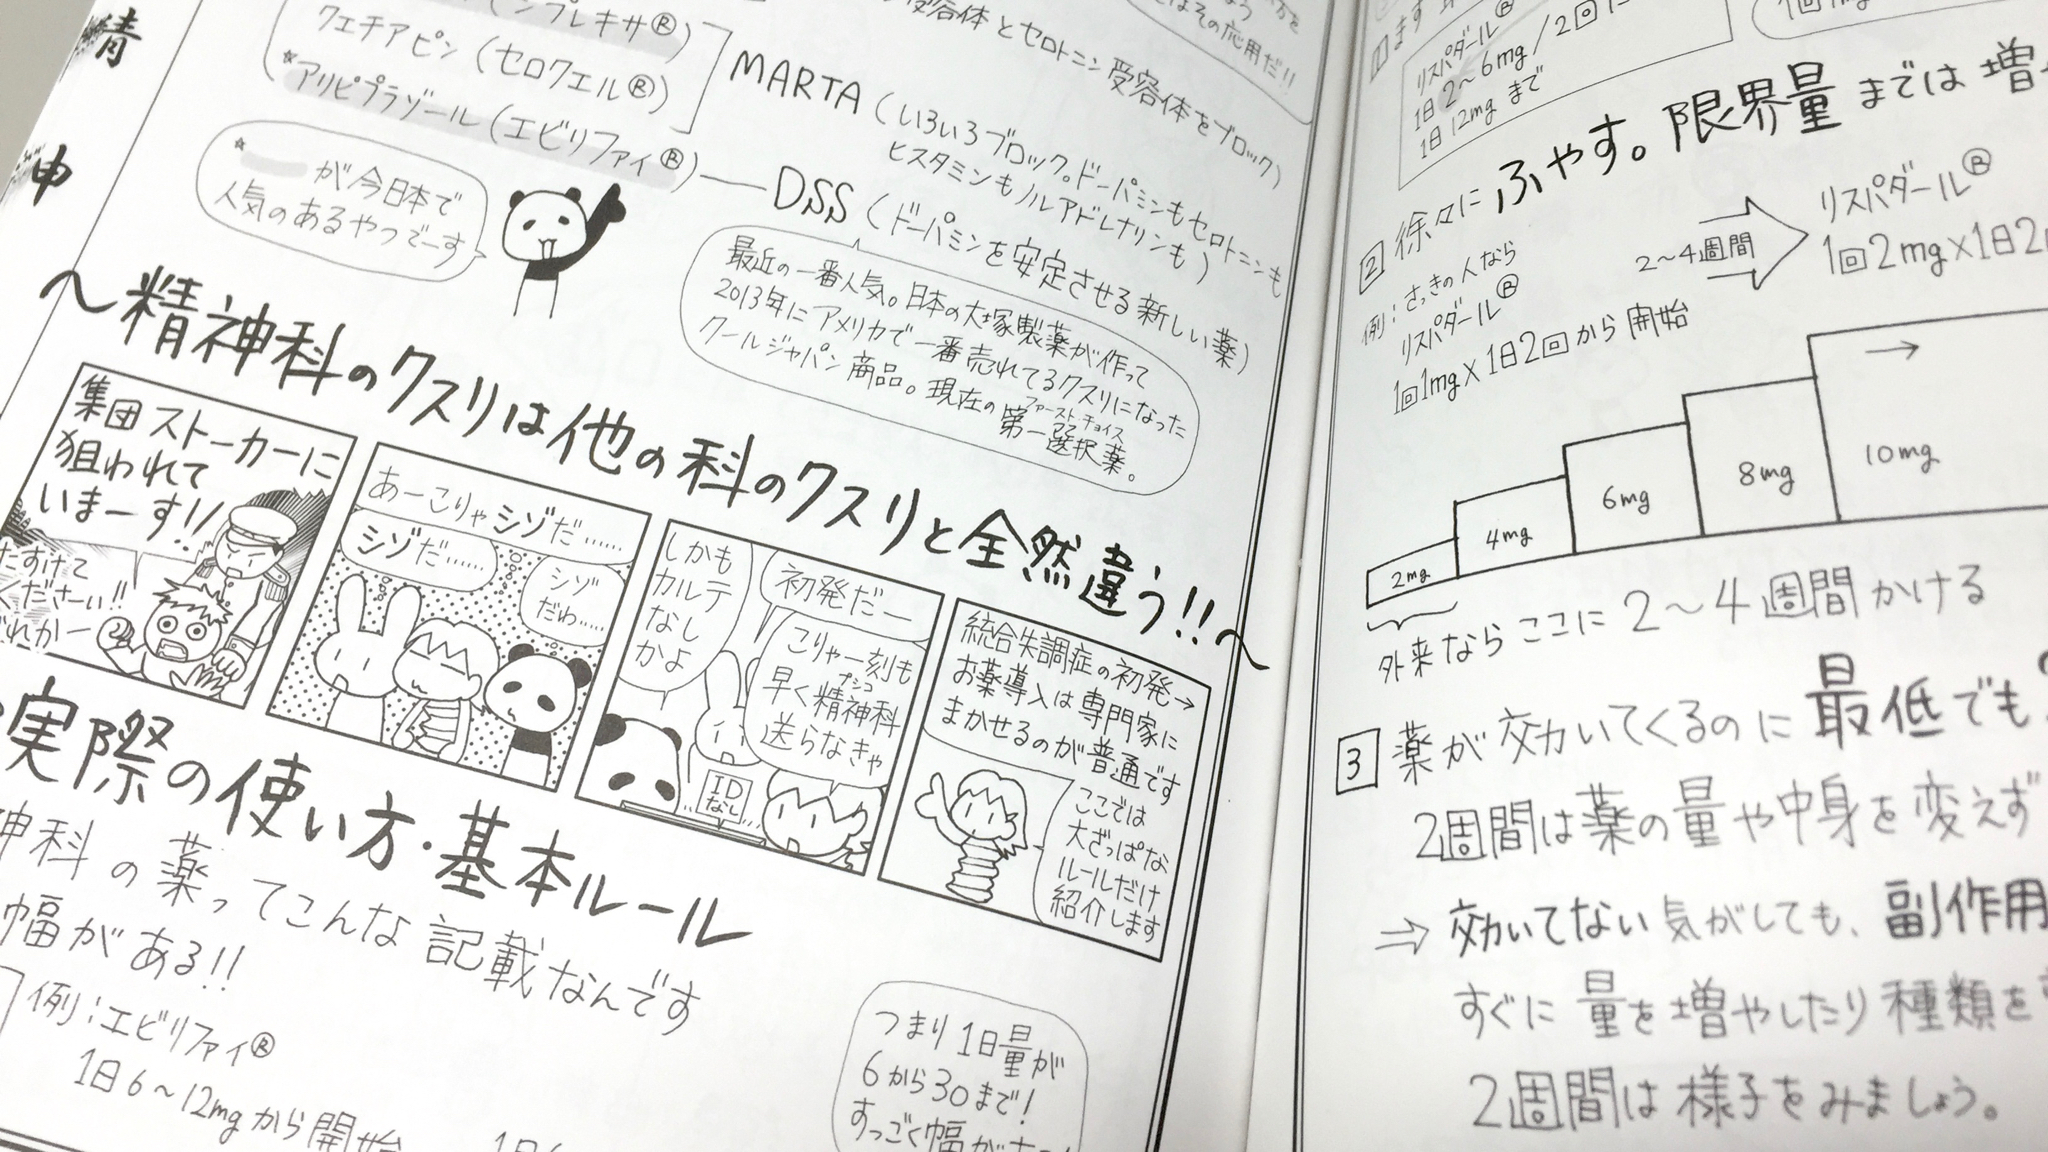 精
神
プレキサ®)
クエチアピン(セロクエル®)
*アリピプラゾール(エビリファイ®)
受容体とセロトニン受容体をブロック)
はその応用だ!!
MARTA(いろいろブロック。ドーパミンもセロトニンも
ヒスタミンもノルアドレナリンも)
DSS(ドーパミンを安定させる新しい薬)
*
が今日本で
人気のあるやつでーす
最近の一番人気。日本の大塚製薬が作って
2013年にアメリカで一番売れてるクスリになった
クールジャパン商品。現在の第一選択薬。
ファースト・チョイス
〜精神科のクスリは他の科のクスリと全然違う!!〜
集団ストーカーに
狙われて
いまーす!!
たすけて
くださーい!!
だれかー
あーこりゃシゾだ……
シゾだ……
シゾ
だわ……
しかも
カルテ
なし
かよ
初発だー
こりゃ一刻も
早く精神科
プシコ
送らなきゃ
ID
なし
統合失調症の初発→
お薬導入は専門家に
まかせるのが普通です
ここでは
大ざっぱな
ルールだけ
紹介します
実際の使い方・基本ルール
神科の薬ってこんな記載なんです
幅がある!!
例:エビリファイ®
1日6〜12mgから開始
つまり1日量が
6から30まで!
すっごく幅が
1
リスパダール®
1日2〜6mg/2回
1日12mgまで
1回1mg
2 徐々にふやす。限界量までは増
例:さっきの人なら
リスパダール®
1回1mg×1日2回から開始
2〜4週間
リスパダール®
1回2mg×1日2
2mg
4mg
6mg
8mg
10mg
外来ならここに2〜4週間かける
3 薬が効いてくるのに最低でも
2週間は薬の量や中身を変えず
⇒効いてない気がしても、副作用
すぐに量を増やしたり種類を
2週間は様子をみましょう。